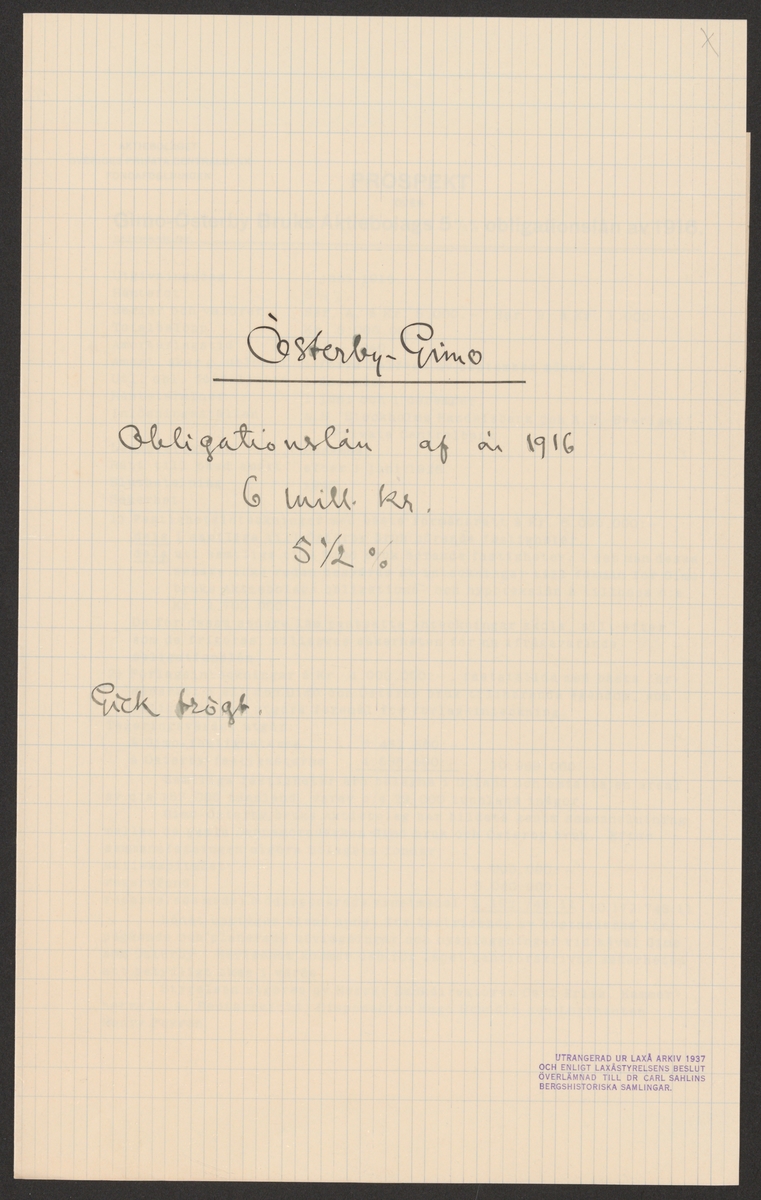 Österby-Gimo
Obligationslån af år 1916
6 mill. kr.
5 1/2 %
Gick trögt.
UTRANGERAD UR LAXÅ ARKIV 1937
OCH ENLIGT LAXÅSTYRELSENS BESLUT
ÖVERLÄMNAD TILL DR CARL SAHLINS
BERGSHISTORISKA SAMLINGAR.